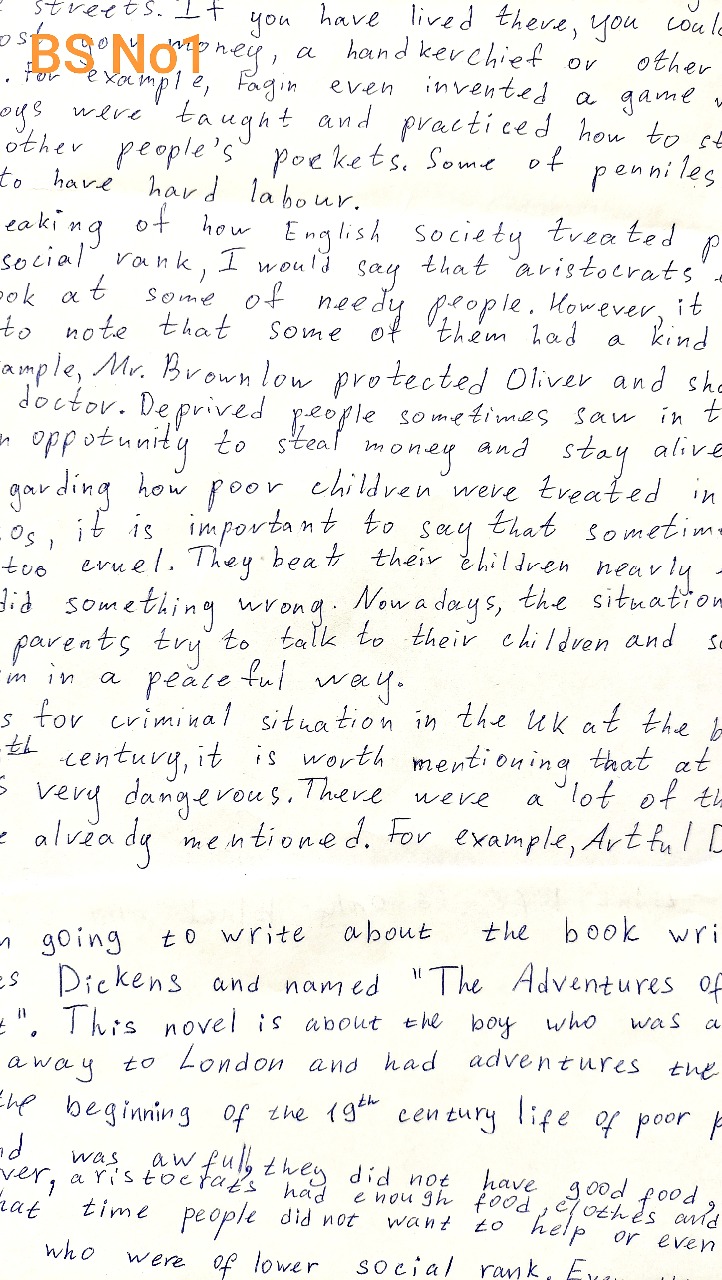 streets. If you have lived there, you could
BS No1
money, a handkerchief or other
. For example, Fagin even invented a game w
oys were taught and practiced how to st
other people's pockets. Some of penniles
to have hard labour.
eaking of how English society treated p
social rank, I would say that aristocrats
ook at some of needy people. However, it
to note that some of them had a kind
ample, Mr. Brownlow protected Oliver and sho
doctor. Deprived people sometimes saw in t
n oppotunity to steal money and stay alive
garding how poor children were treated in
os, it is important to say that sometim
too cruel. They beat their children nearly
did something wrong. Nowadays, the situation
parents try to talk to their children and so
im in a peaceful way.
s for criminal situation in the UK at the b
th century, it is worth mentioning that at
s very dangerous. There were a lot of th
e already mentioned. For example, Artful D
n going to write about the book wri
es Dickens and named "The Adventures of
t". This novel is about the boy who was a
away to London and had adventures the
the beginning of the 19th century life of poor p
nd was awful, they did not have good food,
ver, aristocrats had enough food, clothes and
hat time people did not want to help or even
who were of lower social rank.